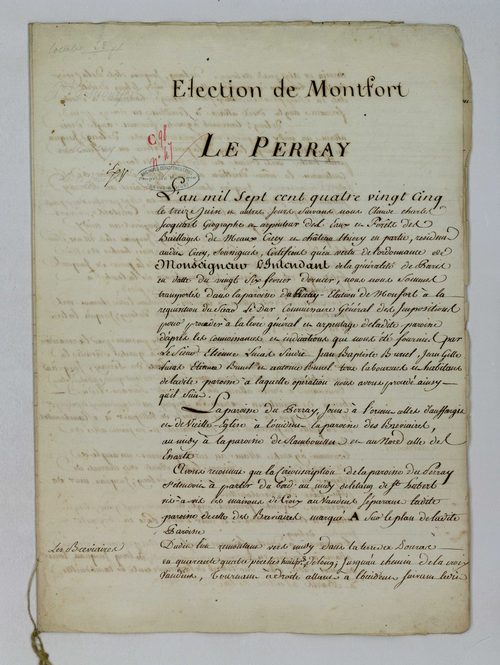 Election de Montfort
C. 98
n° 17
LE PERRAY
L'an mil Sept cent quatre vingt Cinq
le treize Juin et autres Jours Suivans nous Claude charles
Jacquelart Géographe et arpenteur des Eaux et Forêts des
Bailliages de Meaux Crecy et château thiery en partie, résident
audit Crecy, Soussignés, Certifions qu'en vertu de l'ordonnance de
Monseigneur L'Intendant de la généralité de Paris
en datte du vingt Six février dernier, nous nous Sommes
transportés dans la paroisse du Perray Election de Monfort à la
requisition du Sieur Le Dar Commissaire Général des Impositions
pour procéder à la levée général et arpentage de ladite paroisse
d'après les connoissances et indications que nous ont été fournies par
Le Sieur Etienne Lucas Sindic, Jean Baptiste Buveil, Jean Gille
Lucas Etienne Buveil et antoine Buveil tous laboureurs et habitans
de ladite paroisse à laquelle opération nous avons procédé ainsy
qu'il Suit.
La paroisse du Perray, Joint à l'orient celles d'auffargis
et de Vieille Eglise à l'occident la paroisse des Breviaires,
au midy à la paroisse de Rambouillet et au Nord celle des
Esarts
Avons reconnus que la circonscription de la paroisse du Perray
Est à partir du midy de l'étang de St. hubert
vis-à-vis des maisons de Croix au Vandeus Separant ladite
paroisse de celle des Breviaires marqué A Sur le plan de ladite
Paroisse
Les Breviaires
Dudit lieu remontant vers midy dans la terre des
en quarante quatre perches de long, Jusqu'au chemin de la croix
Vandeus, Tournant à droite allant à l'occident Suivant ledit